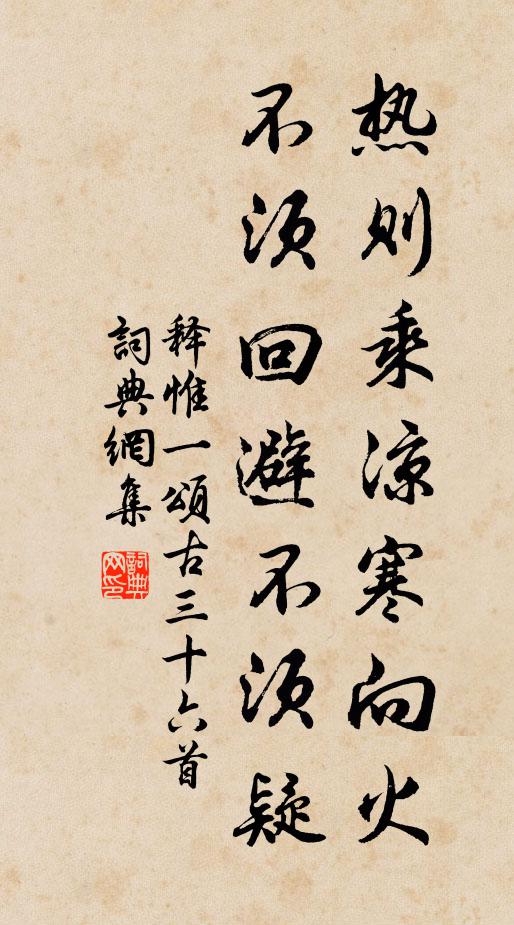 热则乘凉寒向火
不须回避不须疑
释惟一頌古三十六首
詞典網集
詞典网印